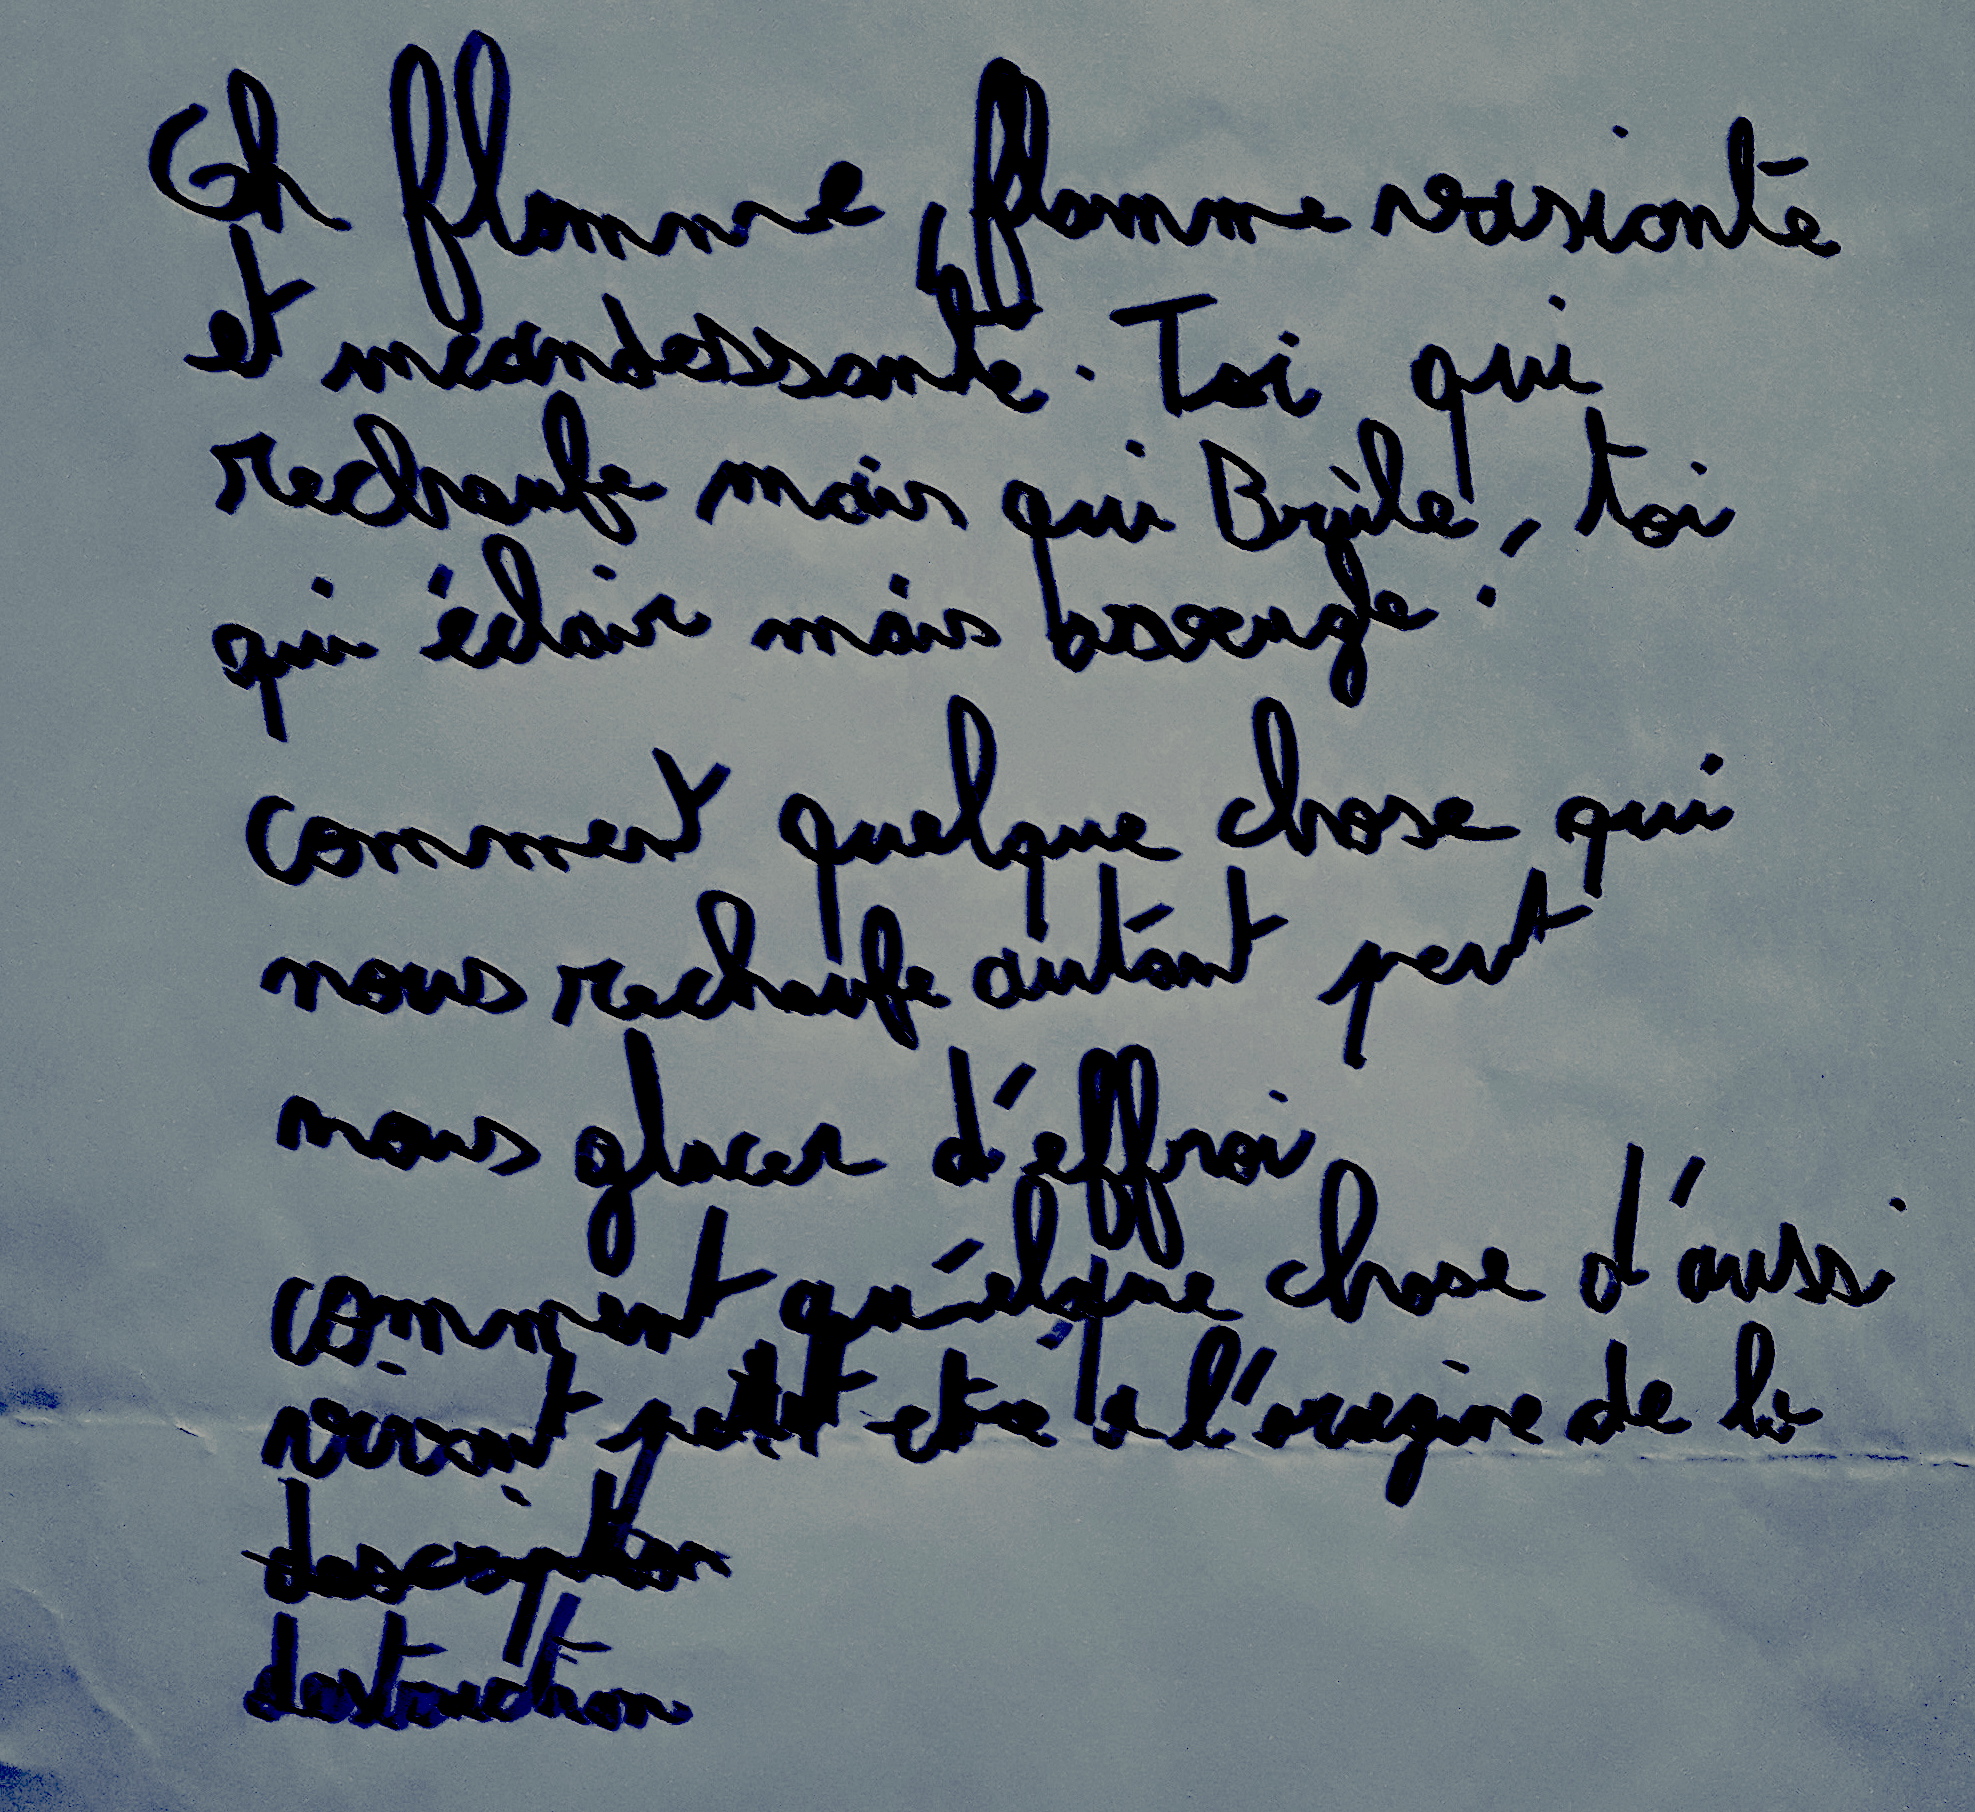 Oh flamme, flamme vasiante
et incandessante. Toi qui
rechaufe mais qui Brûle, toi
qui éclair mais aveugle.
comment quelque chose qui
nous rechaufe autant peut
nous glacer d'effroi
comment quelque chose d'aussi
vivant peut etre à l'origine de la
description
destruction